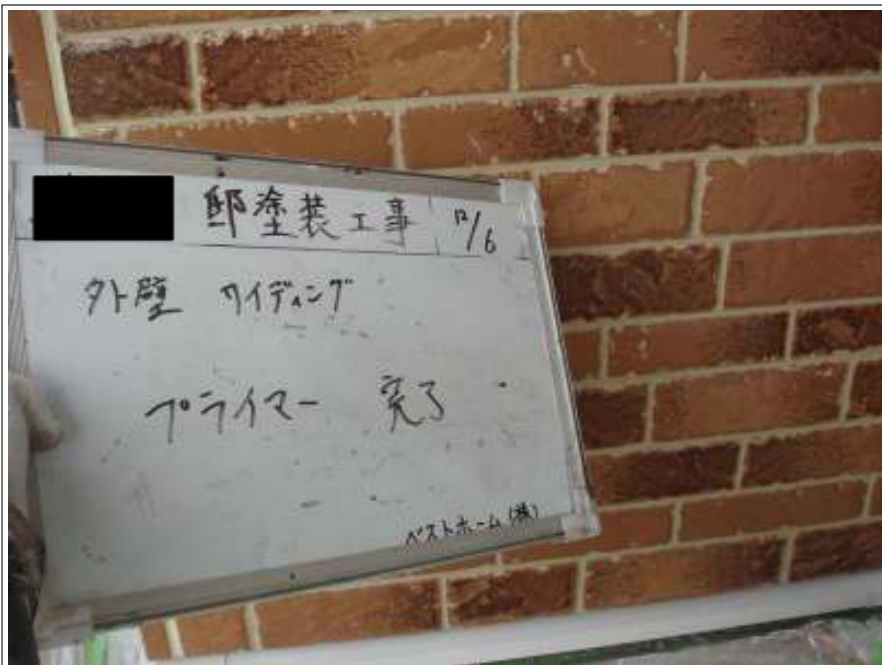 邸塗装工事 12/6
外壁 サイディング
プライマー 完了
ベストホーム(株)